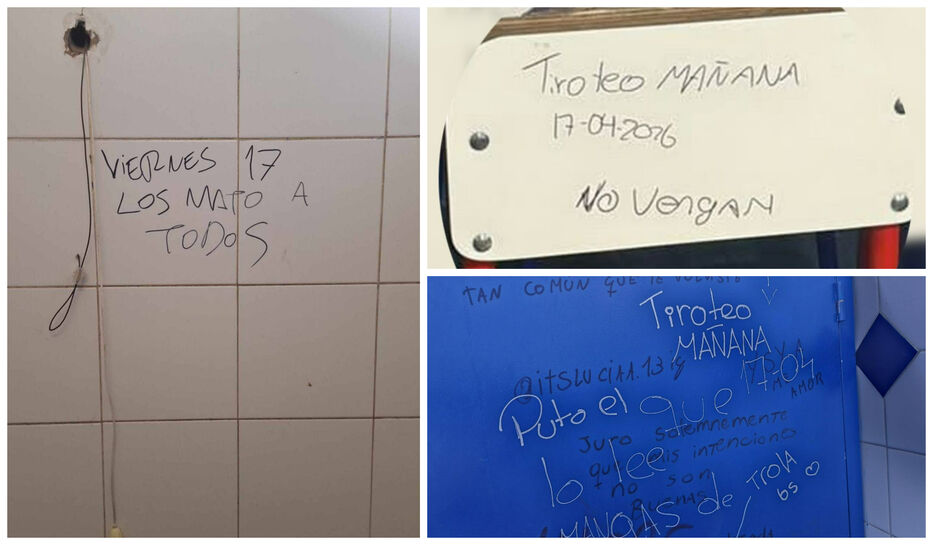 VIERNES 17
LOS MATO A
TODOS
Tiroteo MAÑANA
17-04-2026
NO VENGAN
TAN COMUN QUE
Tiroteo
MAÑANA
17-04
@itsluciaa.13
AMOR
Puto el que
lo lee
Juro solemnemente
que mis intenciones
no son
BUENAS
MANGAS de TROLA
bs ♡